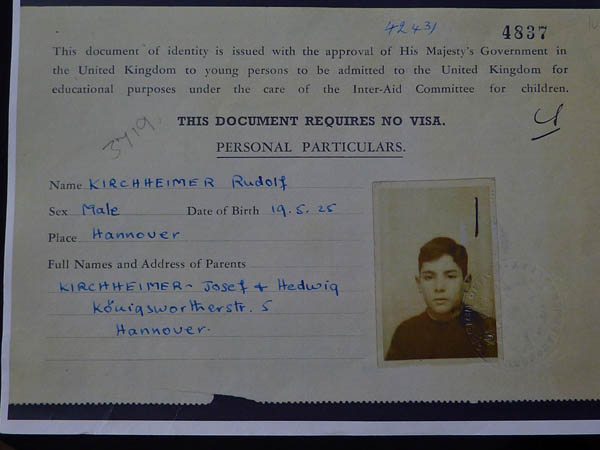 42431
4837
This document of identity is issued with the approval of His Majesty's Government in
the United Kingdom to young persons to be admitted to the United Kingdom for
educational purposes under the care of the Inter-Aid Committee for children.
THIS DOCUMENT REQUIRES NO VISA.
3719
PERSONAL PARTICULARS.
Name KIRCHHEIMER Rudolf
Sex Male Date of Birth 19.5.25
Place Hannover
Full Names and Address of Parents
KIRCHHEIMER - Josef + Hedwig
Königswortherstr. 5
Hannover.